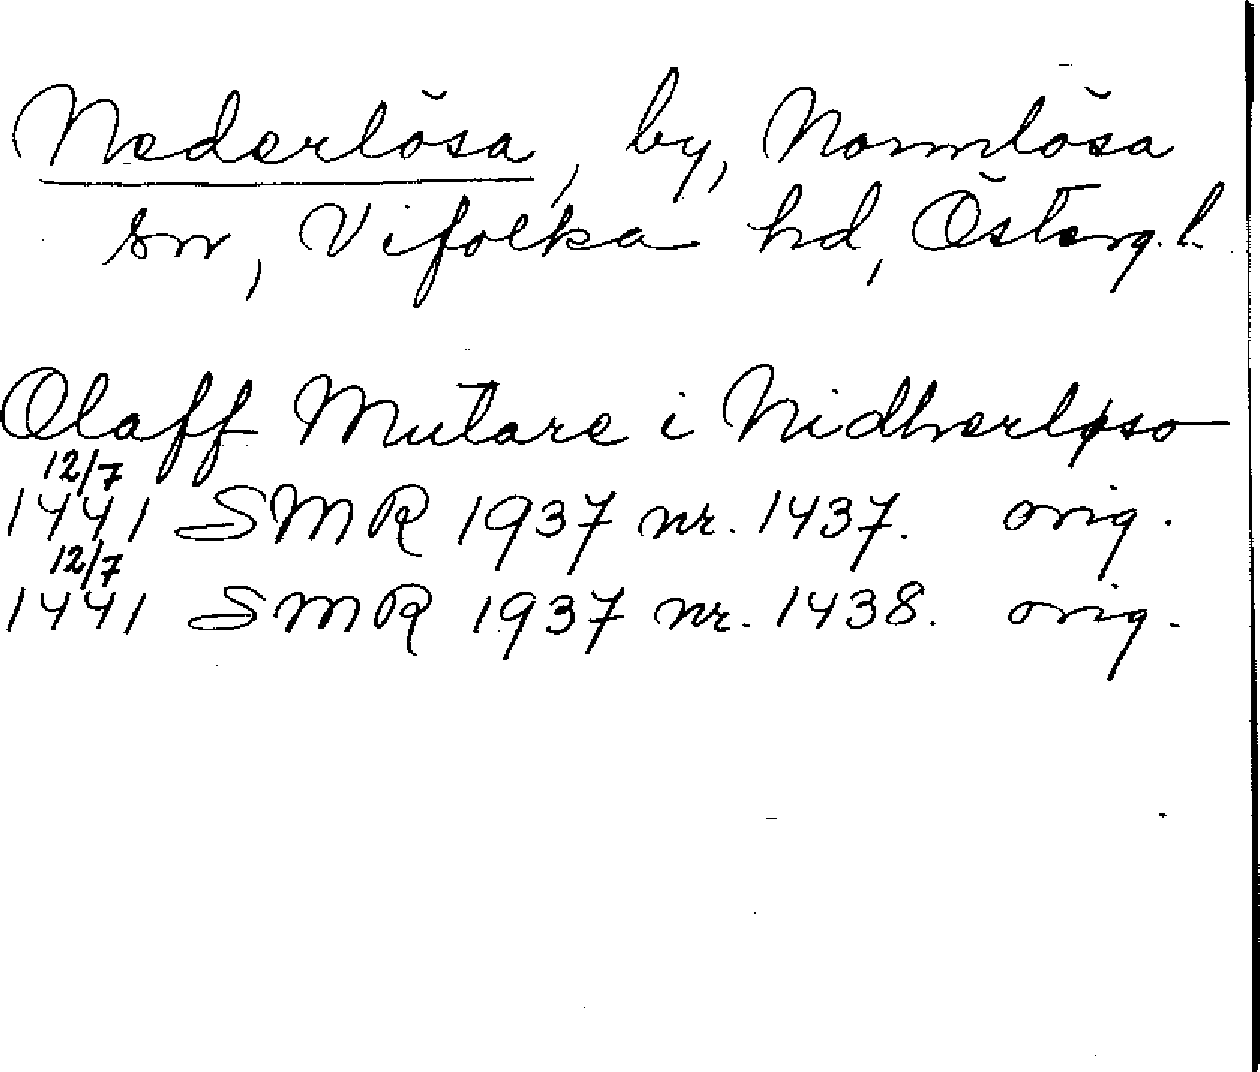 Nederlösa, by, Normlösa
sn, Vifolka hd, Österg. l.
Olaff Mutare i Nidherløso
12/7
1441 SMR 1937 nr. 1437. orig.
12/7
1441 SMR 1937 nr. 1438. orig.